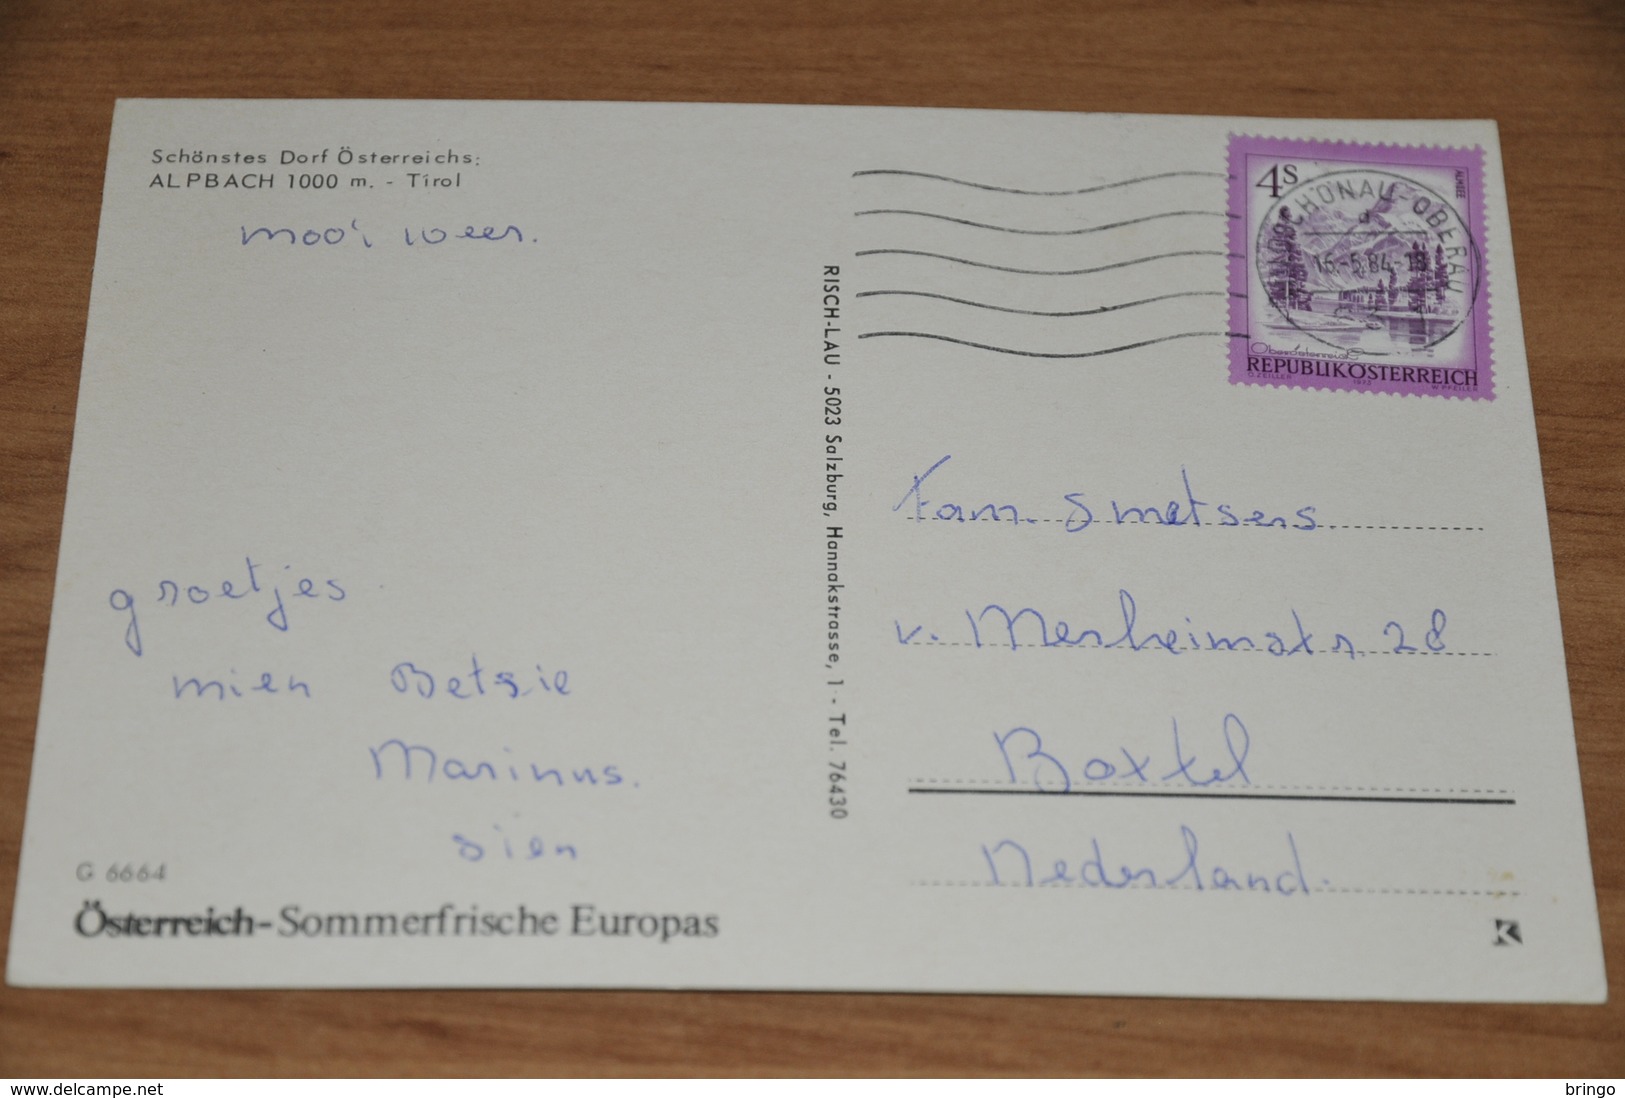 Schönstes Dorf Österreichs:
ALPBACH 1000 m. - Tirol
mooi weer.
groetjes
mien Betsie
Marinus.
sien
G 6664
Österreich-Sommerfrische Europas
RISCH-LAU - 5023 Salzburg, Hannakstrasse, 1 - Tel. 76430
4S
ALMSEE
SCHÖNAU-OBERAU
16.-5.84-18
Oberösterreich
REPUBLIK ÖSTERREICH
O. ZEILLER 1973 W. PFEILER
Fam. Smetsers.
v. Merheimstr. 28
Boxtel
Nederland.
K
delcampe.net
bringo